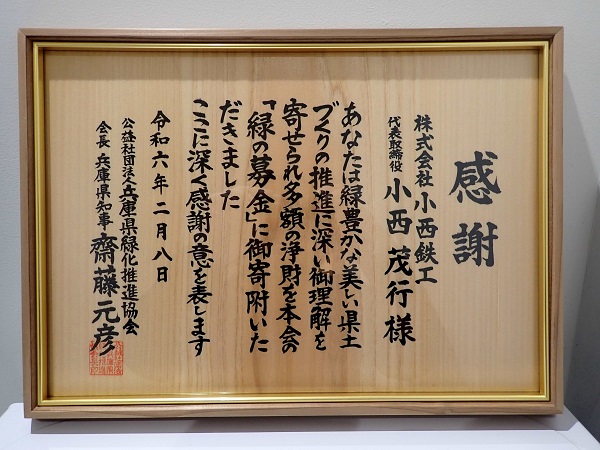 感謝
株式会社小西鉄工
代表取締役 小西茂行様
あなたは緑豊かな美しい県土
づくりの推進に深い御理解を
寄せられ多額の浄財を本会の
「緑の募金」に御寄附いた
だきました
ここに深く感謝の意を表します
令和六年二月八日
公益社団法人兵庫県緑化推進協会
会長 兵庫県知事 齋藤元彦